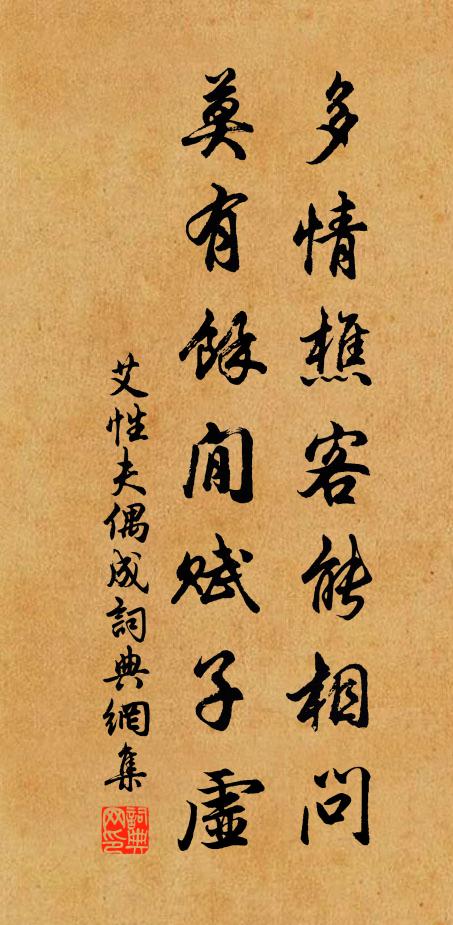 多情樵客能相問
莫有餘閒賦子虛
艾性夫偶成詞典網集
詞典網印